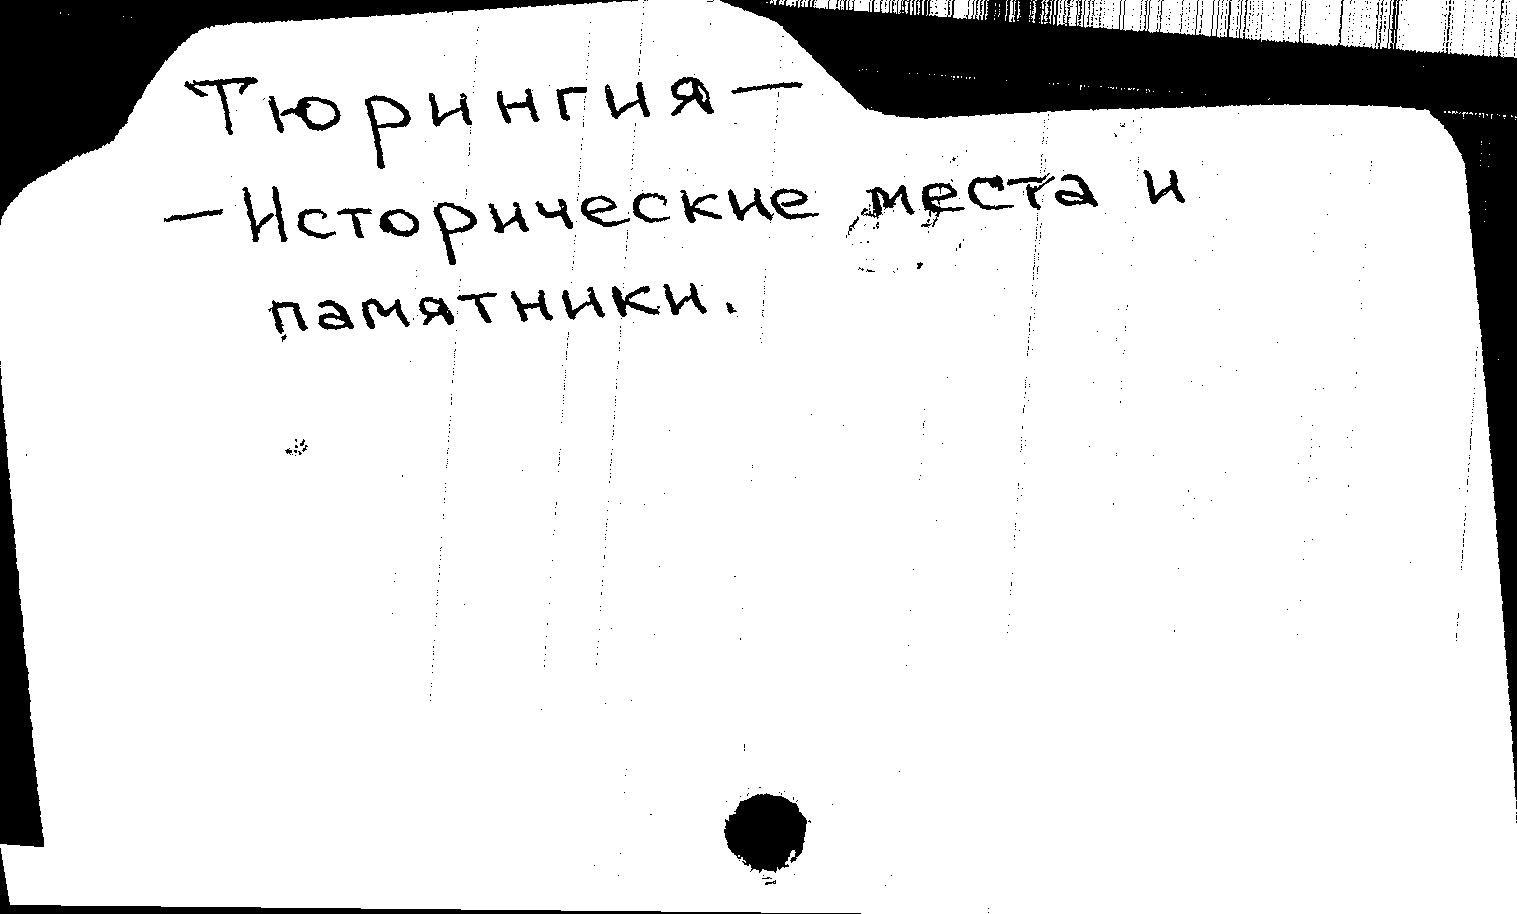 Тюрингия —
— Исторические места и
памятники.